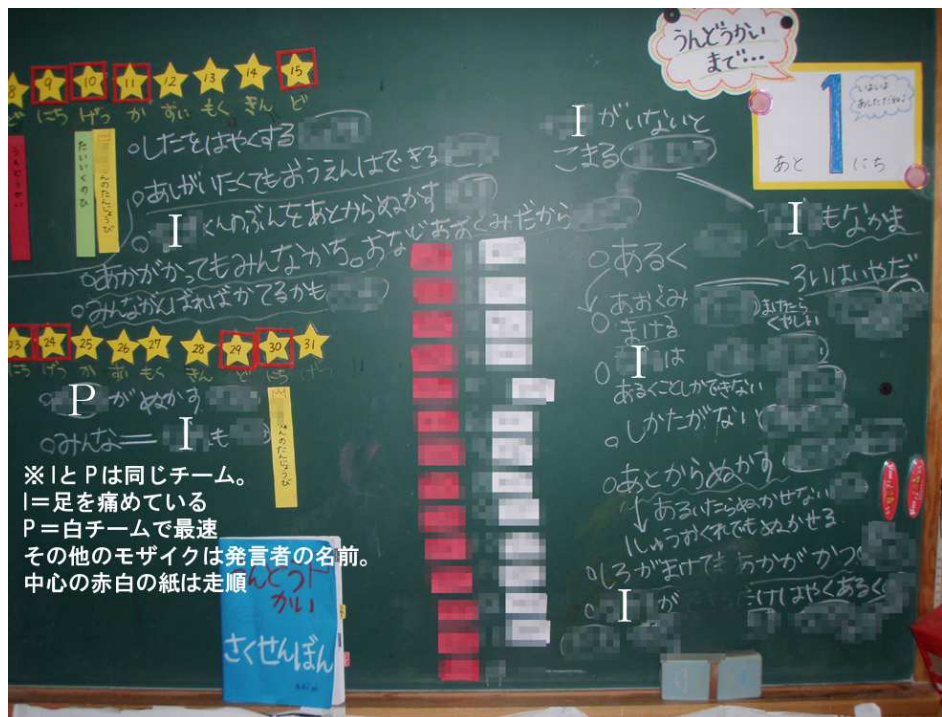 うんどうかい
まで…
いよいよ
あしただね♪
あと 1 にち
8 9 10 11 12 13 14 15
ど にち げつ か すい もく きん ど
うんどうかい
たいいくのひ
んのたんじょうび
○したをはやくする
○あしがいたくてもおうえんはできる
○ I くんのぶんをあとからぬかす
○あかがかってもみんなかち。おなじあおぐみだから
○みんながんばればかてるかも
23 24 25 26 27 28 29 30 31
にち げつ か すい もく きん ど にち げつ
んのたんじょうび
○ P がぬかす
○みんな= I も
※IとPは同じチーム。
I=足を痛めている
P=白チームで最速
その他のモザイクは発言者の名前。
中心の赤白の紙は走順
うんどう
かい
さくせんぼん
I がいないと
こまる
I もなかま
○あるく
○あおぐみ
まける
まけたら
くやしい
ろいはいやだ
○ I は
あるくことしかできない
○しかたがない
○あとからぬかす
↓あるいたらぬかせない
1しゅうおくれでもぬかせる
○しろがまけてもあかがかつ
○ I が だけはやくあるく